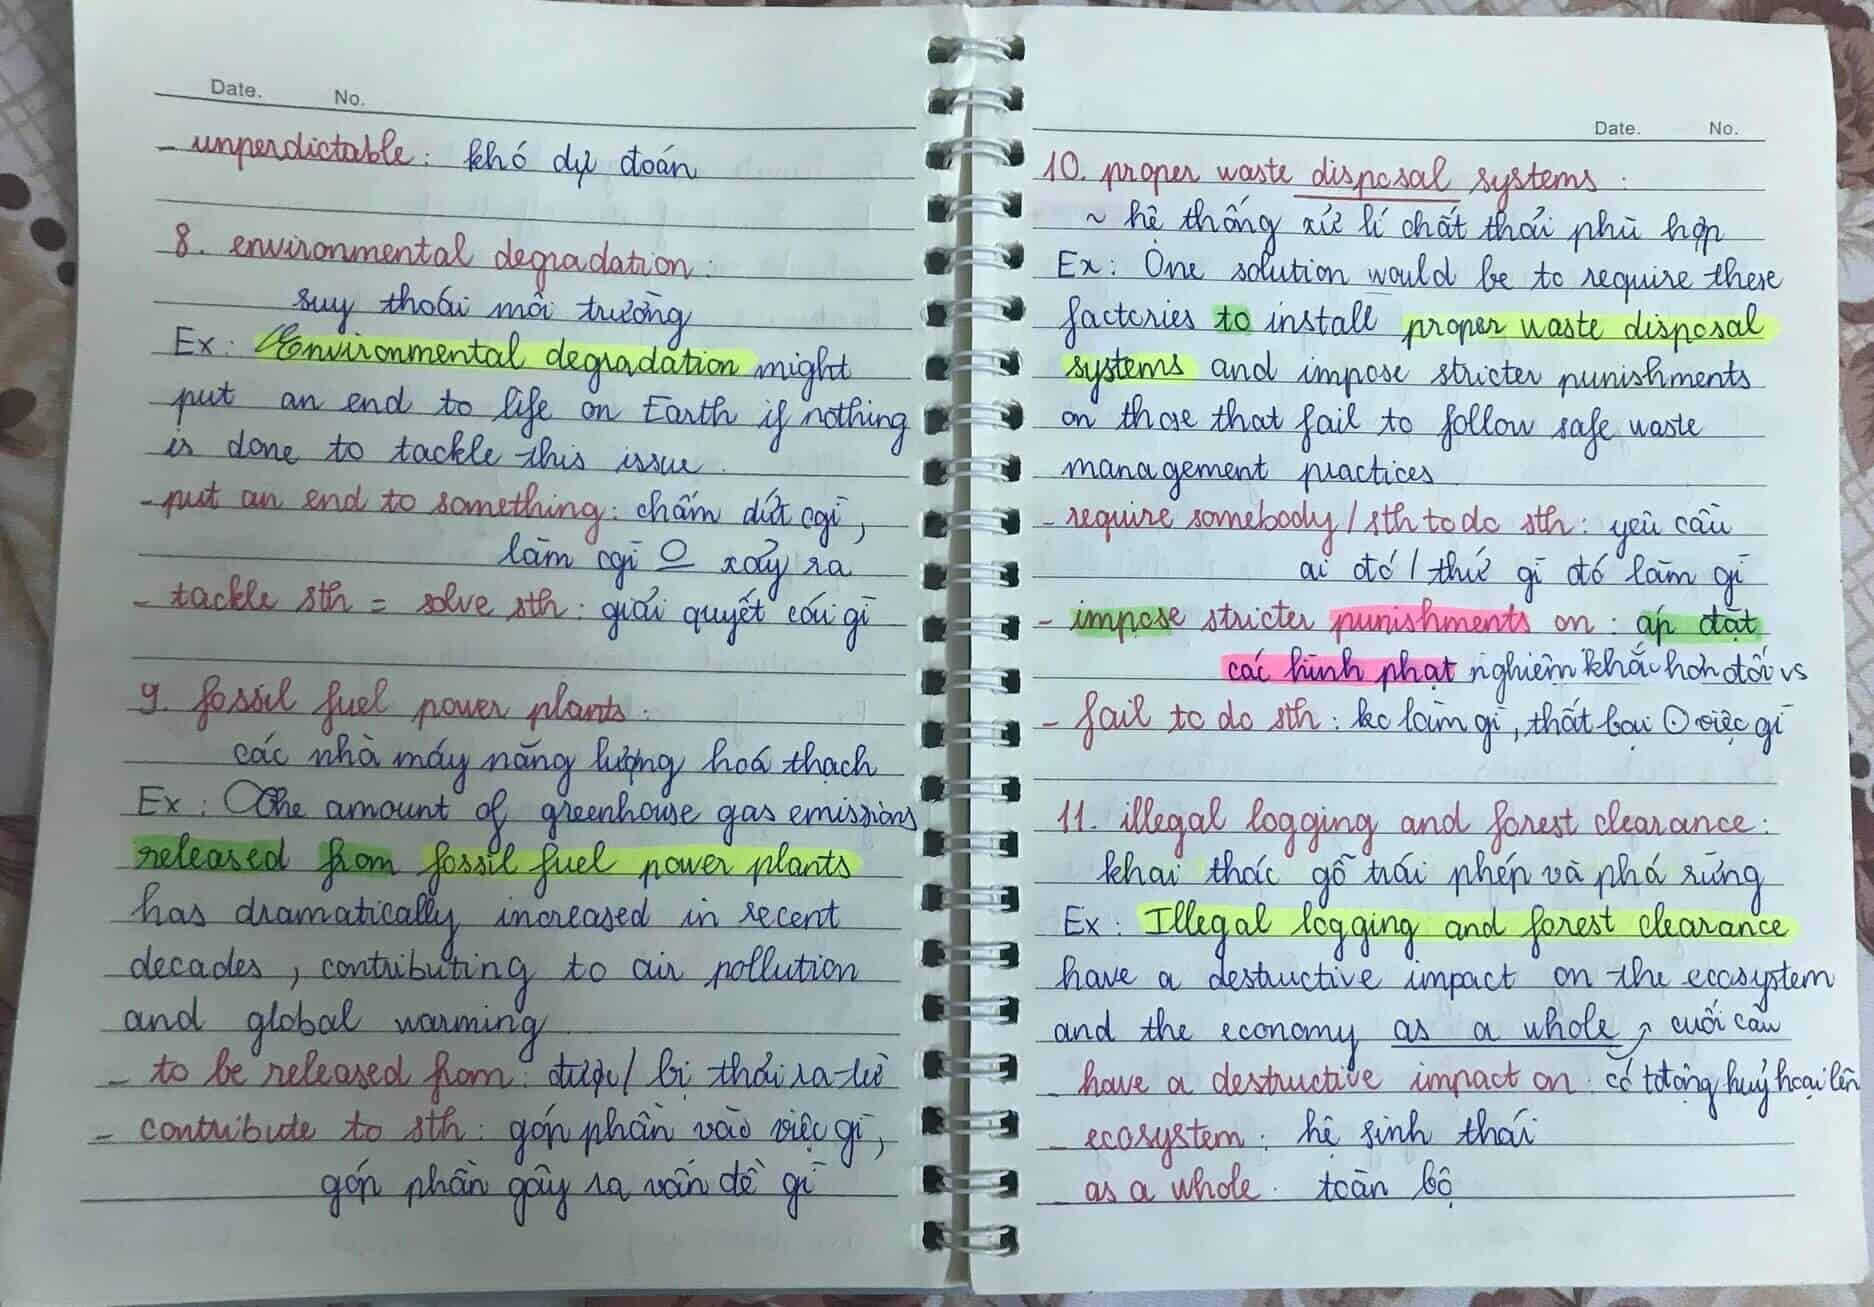 Date. No.
- unperdictable: khó dự đoán
8. environmental degradation:
suy thoái môi trường
Ex: Environmental degradation might
put an end to life on Earth if nothing
is done to tackle this issue.
- put an end to something: chấm dứt cgì,
làm cgì O xảy ra
- tackle sth = solve sth: giải quyết cái gì
9. fossil fuel power plants:
các nhà máy năng lượng hoá thạch
Ex: The amount of greenhouse gas emissions
released from fossil fuel power plants
has dramatically increased in recent
decades, contributing to air pollution
and global warming
- to be released from: được/ bị thải ra từ
- contribute to sth: góp phần vào việc gì,
góp phần gây ra vấn đề gì
Date. No.
10. proper waste disposal systems:
~ hệ thống xử lí chất thải phù hợp
Ex: One solution would be to require these
factories to install proper waste disposal
systems and impose stricter punishments
on those that fail to follow safe waste
management practices.
- require somebody/ sth to do sth: yêu cầu
ai đó / thứ gì đó làm gì
- impose stricter punishments on: áp đặt
các hình phạt nghiêm khắc hơn đối vs
- fail to do sth: ko làm gì, thất bại việc gì
11. illegal logging and forest clearance:
khai thác gỗ trái phép và phá rừng
Ex: Illegal logging and forest clearance
have a destructive impact on the ecosystem
and the economy as a whole cuối câu
- have a destructive impact on: có tđộng huỷ hoại lên
- ecosystem: hệ sinh thái
- as a whole: toàn bộ